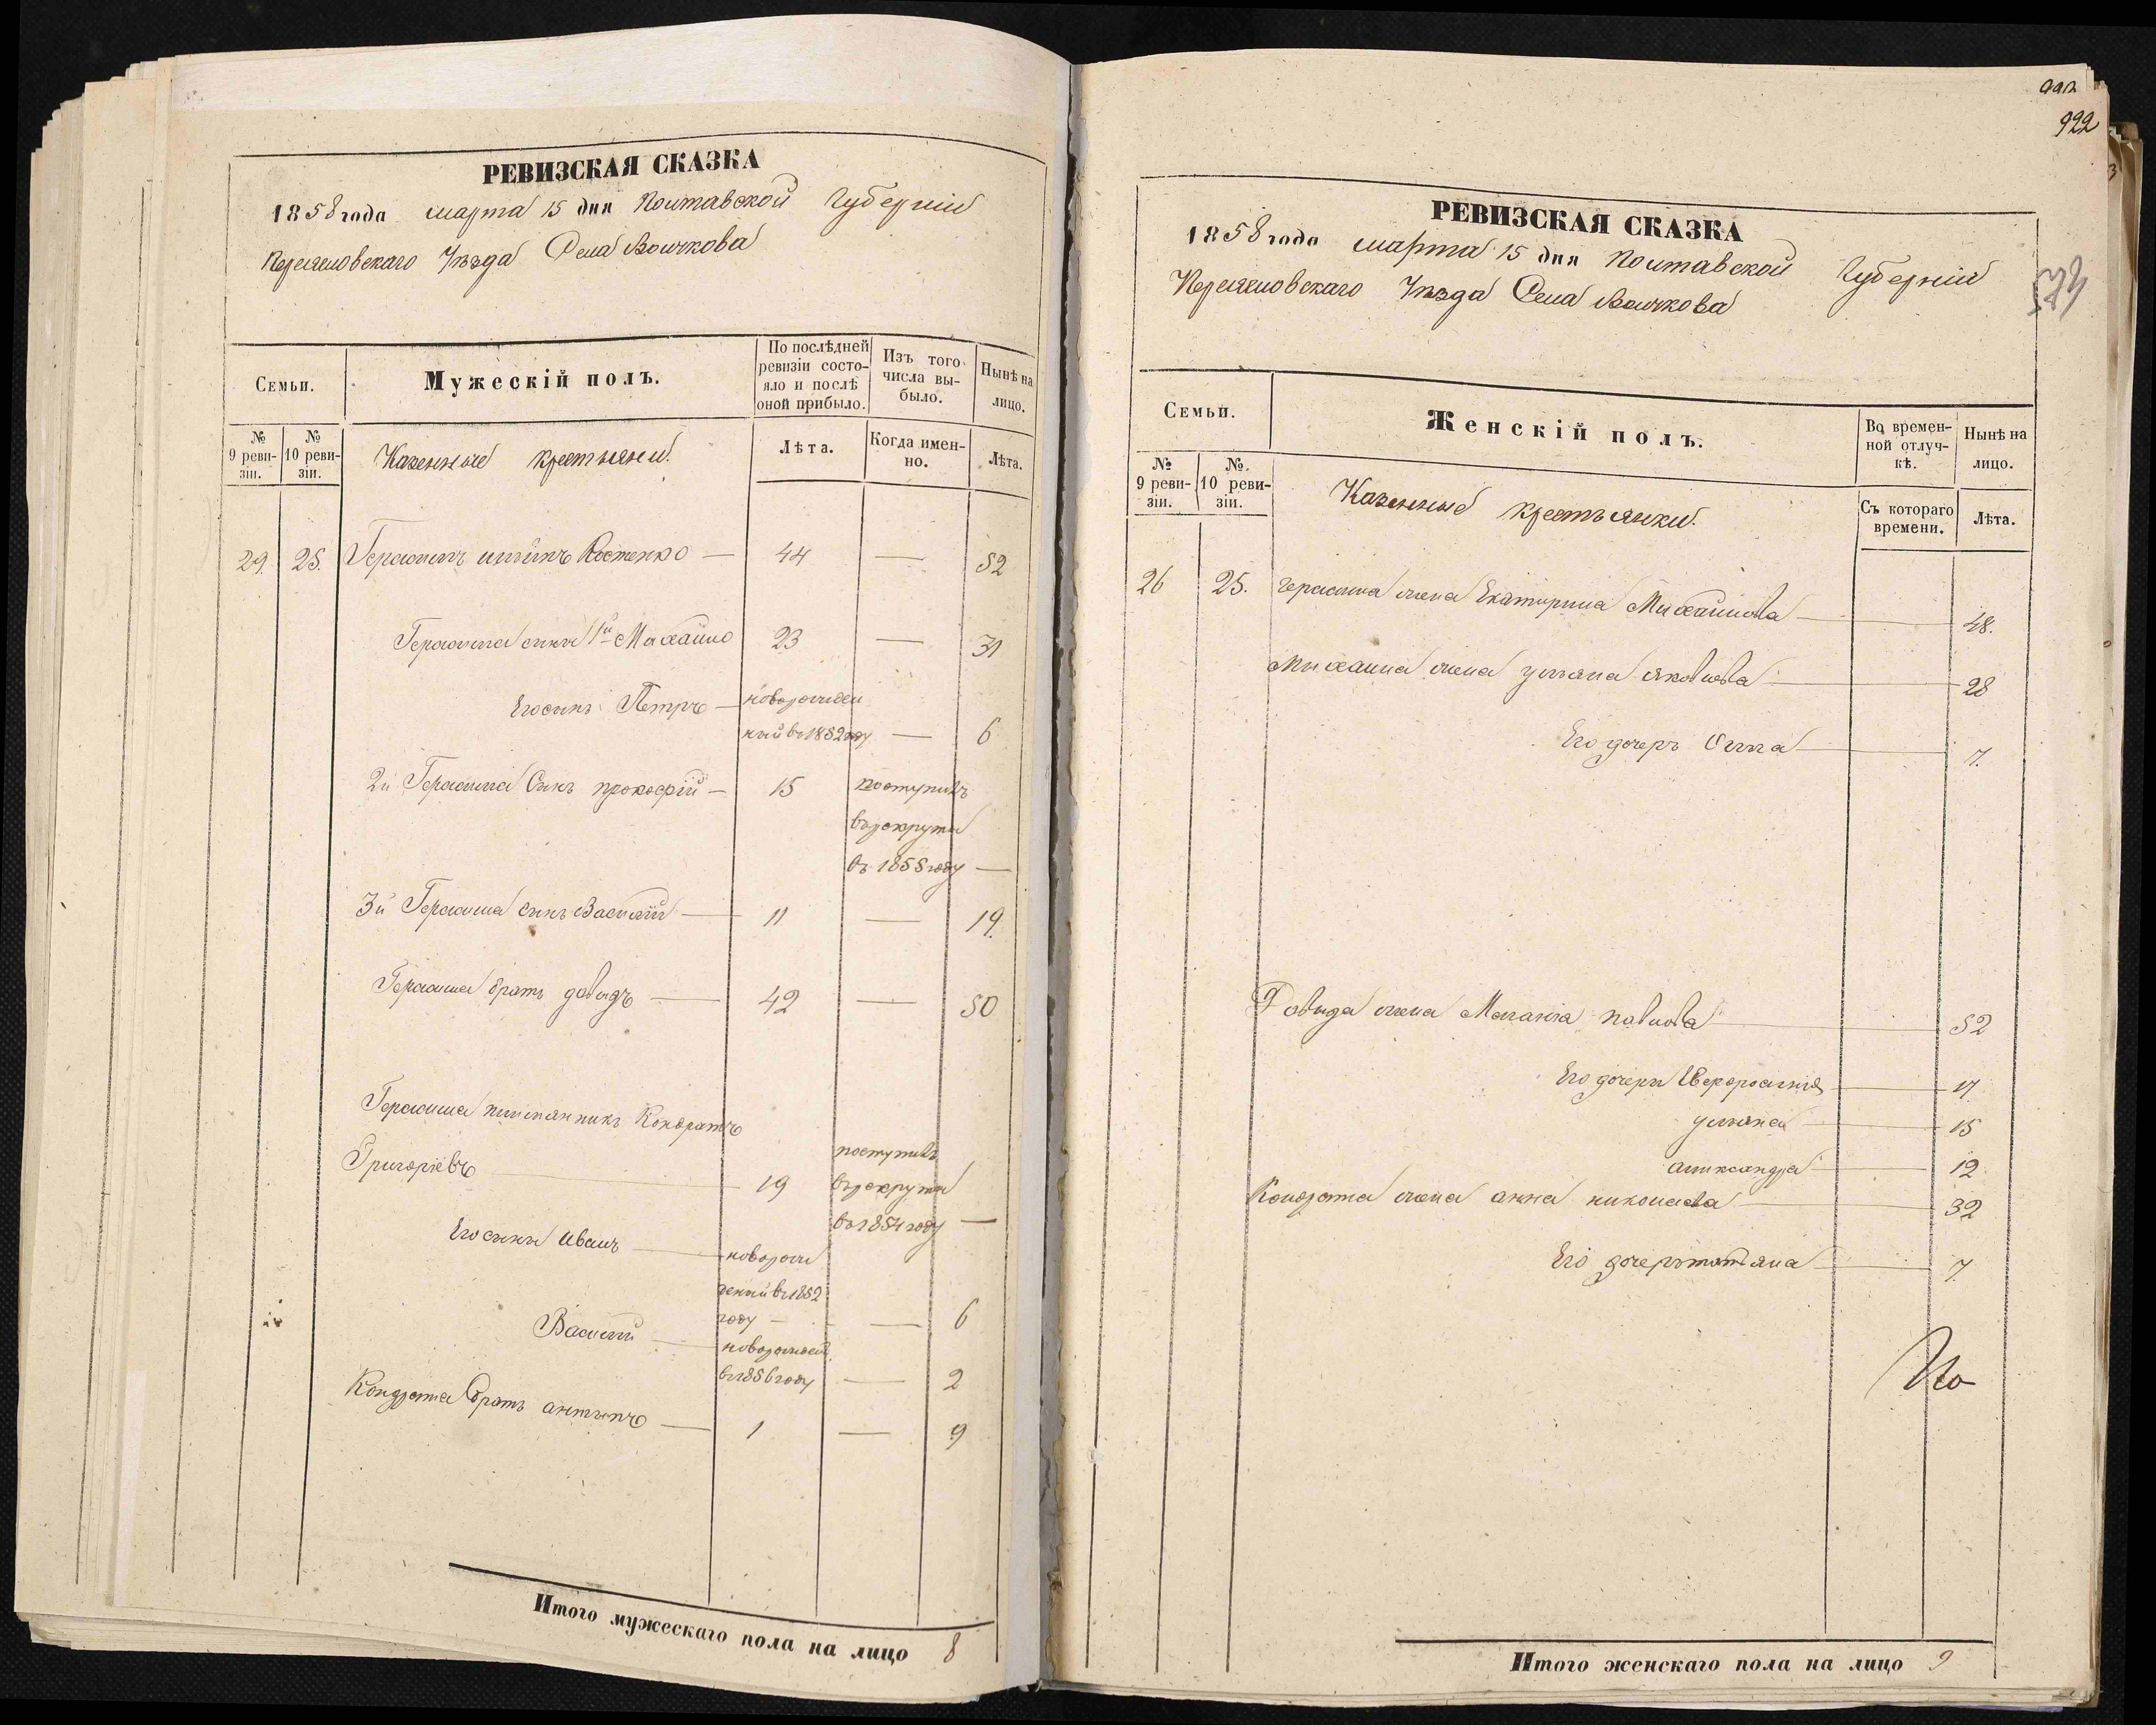 РЕВИЗСКАЯ СКАЗКА
1858 года марта 15 дня Полтавской Губерніи
Переяславскаго Уѣзда Села Волчкова
Семьи.
Мужескій полъ.
По послѣдней ревизіи состояло и послѣ оной прибыло.
Изъ того числа выбыло.
Нынѣ на лицо.
№ 9 ревизіи.
№ 10 ревизіи.
Казенные крестьяни.
Лѣта.
Когда именно.
Лѣта.
29. 25. Герасимъ Костенко — 44 — 52
Герасима сынъ 1й Михайло 23 — 31
Его сынъ Петръ — новорожден
ный въ 1852 году — 6
2й Герасима Сынъ прокофій — 15 поступилъ
въ рекруты
въ 1855 году —
3й Герасима сынъ Василій — 11 — 19.
Герасима братъ давидъ — 42 — 50
Герасима племянникъ Кондратъ
Григоріевъ — 19 поступилъ
въ рекруты
въ 1854 году —
Его сынъ Иванъ — новорож
денный въ 1852
году — — 6
Василій — новорожден
въ 1856 году — 2
Кондрата братъ антипъ — 1 — 9
Итого мужескаго пола на лицо 8
922
РЕВИЗСКАЯ СКАЗКА
1858 года марта 15 дня Полтавской Губерніи
Переяславскаго Уѣзда Села Волчкова
Семьи.
Женскій полъ.
Во временной отлучкѣ.
Нынѣ на лицо.
№ 9 ревизіи.
№. 10 ревизіи.
Казенные крестьянки.
Съ котораго времени.
Лѣта.
26 25. герасима жена Екатирина Михайлова — 48.
Михаила жена ульяна яковлева — 28
Его дочерь — 7.
Давида жена Меланія павлова — 52
Его дочери — 17
ульяна — 15
аликсандра — 12
Кондрата жена анна николаева — 32
Его дочерь татіяна — 7.
Итого женскаго пола на лицо 9